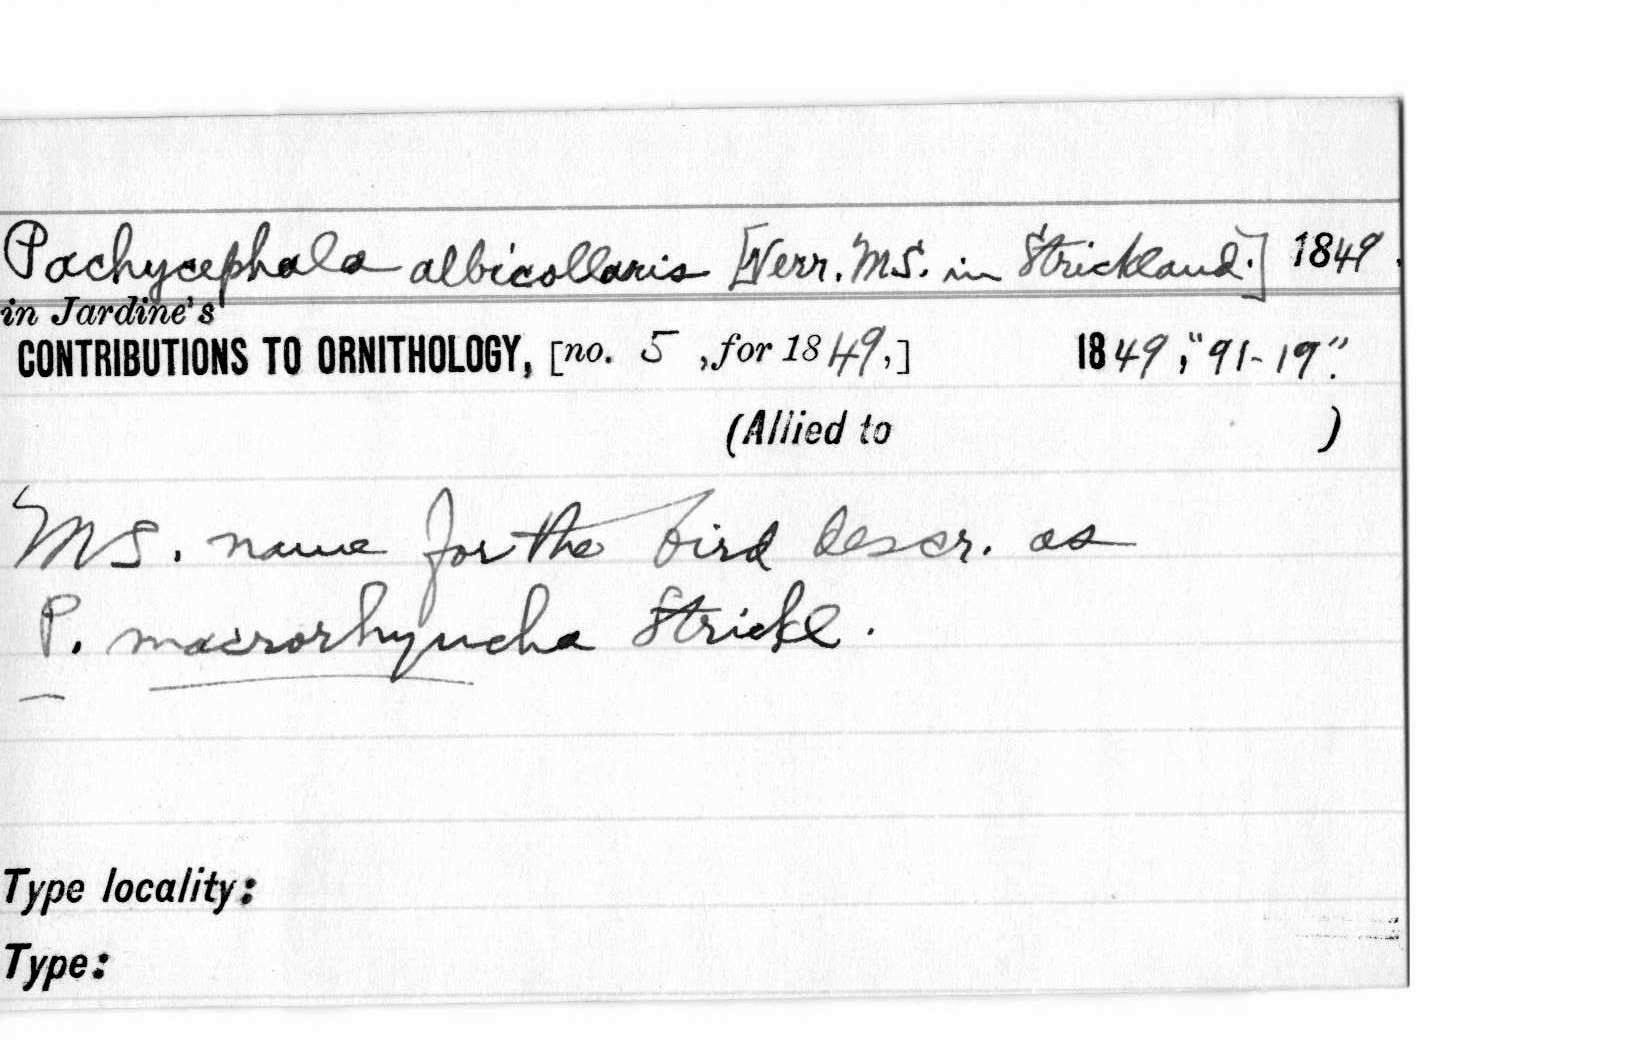 Pachycephala albicollaris [Verr. MS. in Strickland.] 1849.
in Jardine's
CONTRIBUTIONS TO ORNITHOLOGY, [no. 5 ,for 1849,] 1849, "91-19".
(Allied to )
MS. name for the bird descr. as
P. macrorhyncha Strickl.
Type locality:
Type: